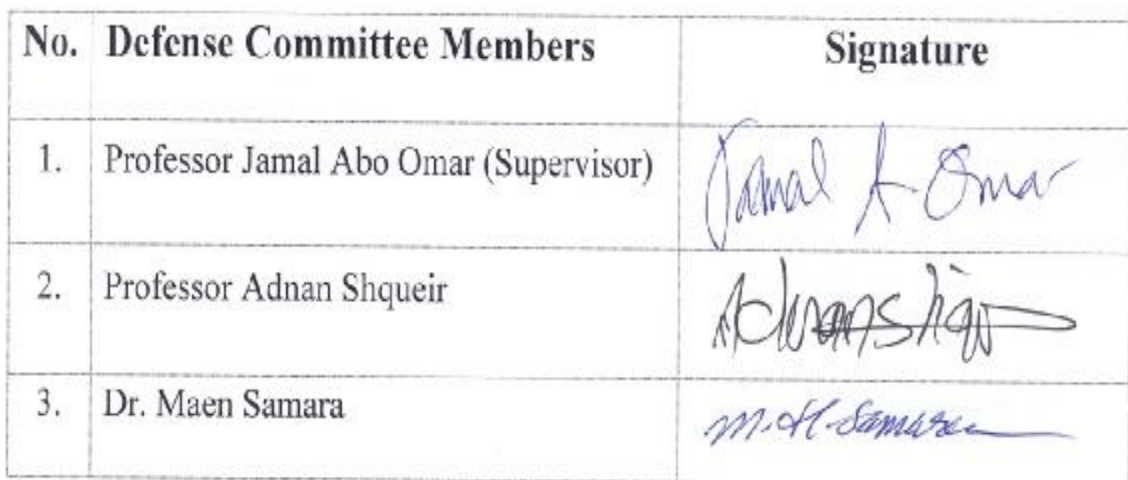 No. Defense Committee Members Signature
1. Professor Jamal Abo Omar (Supervisor) Jamal A Omar
2. Professor Adnan Shqueir
3. Dr. Maen Samara M. H. Samara